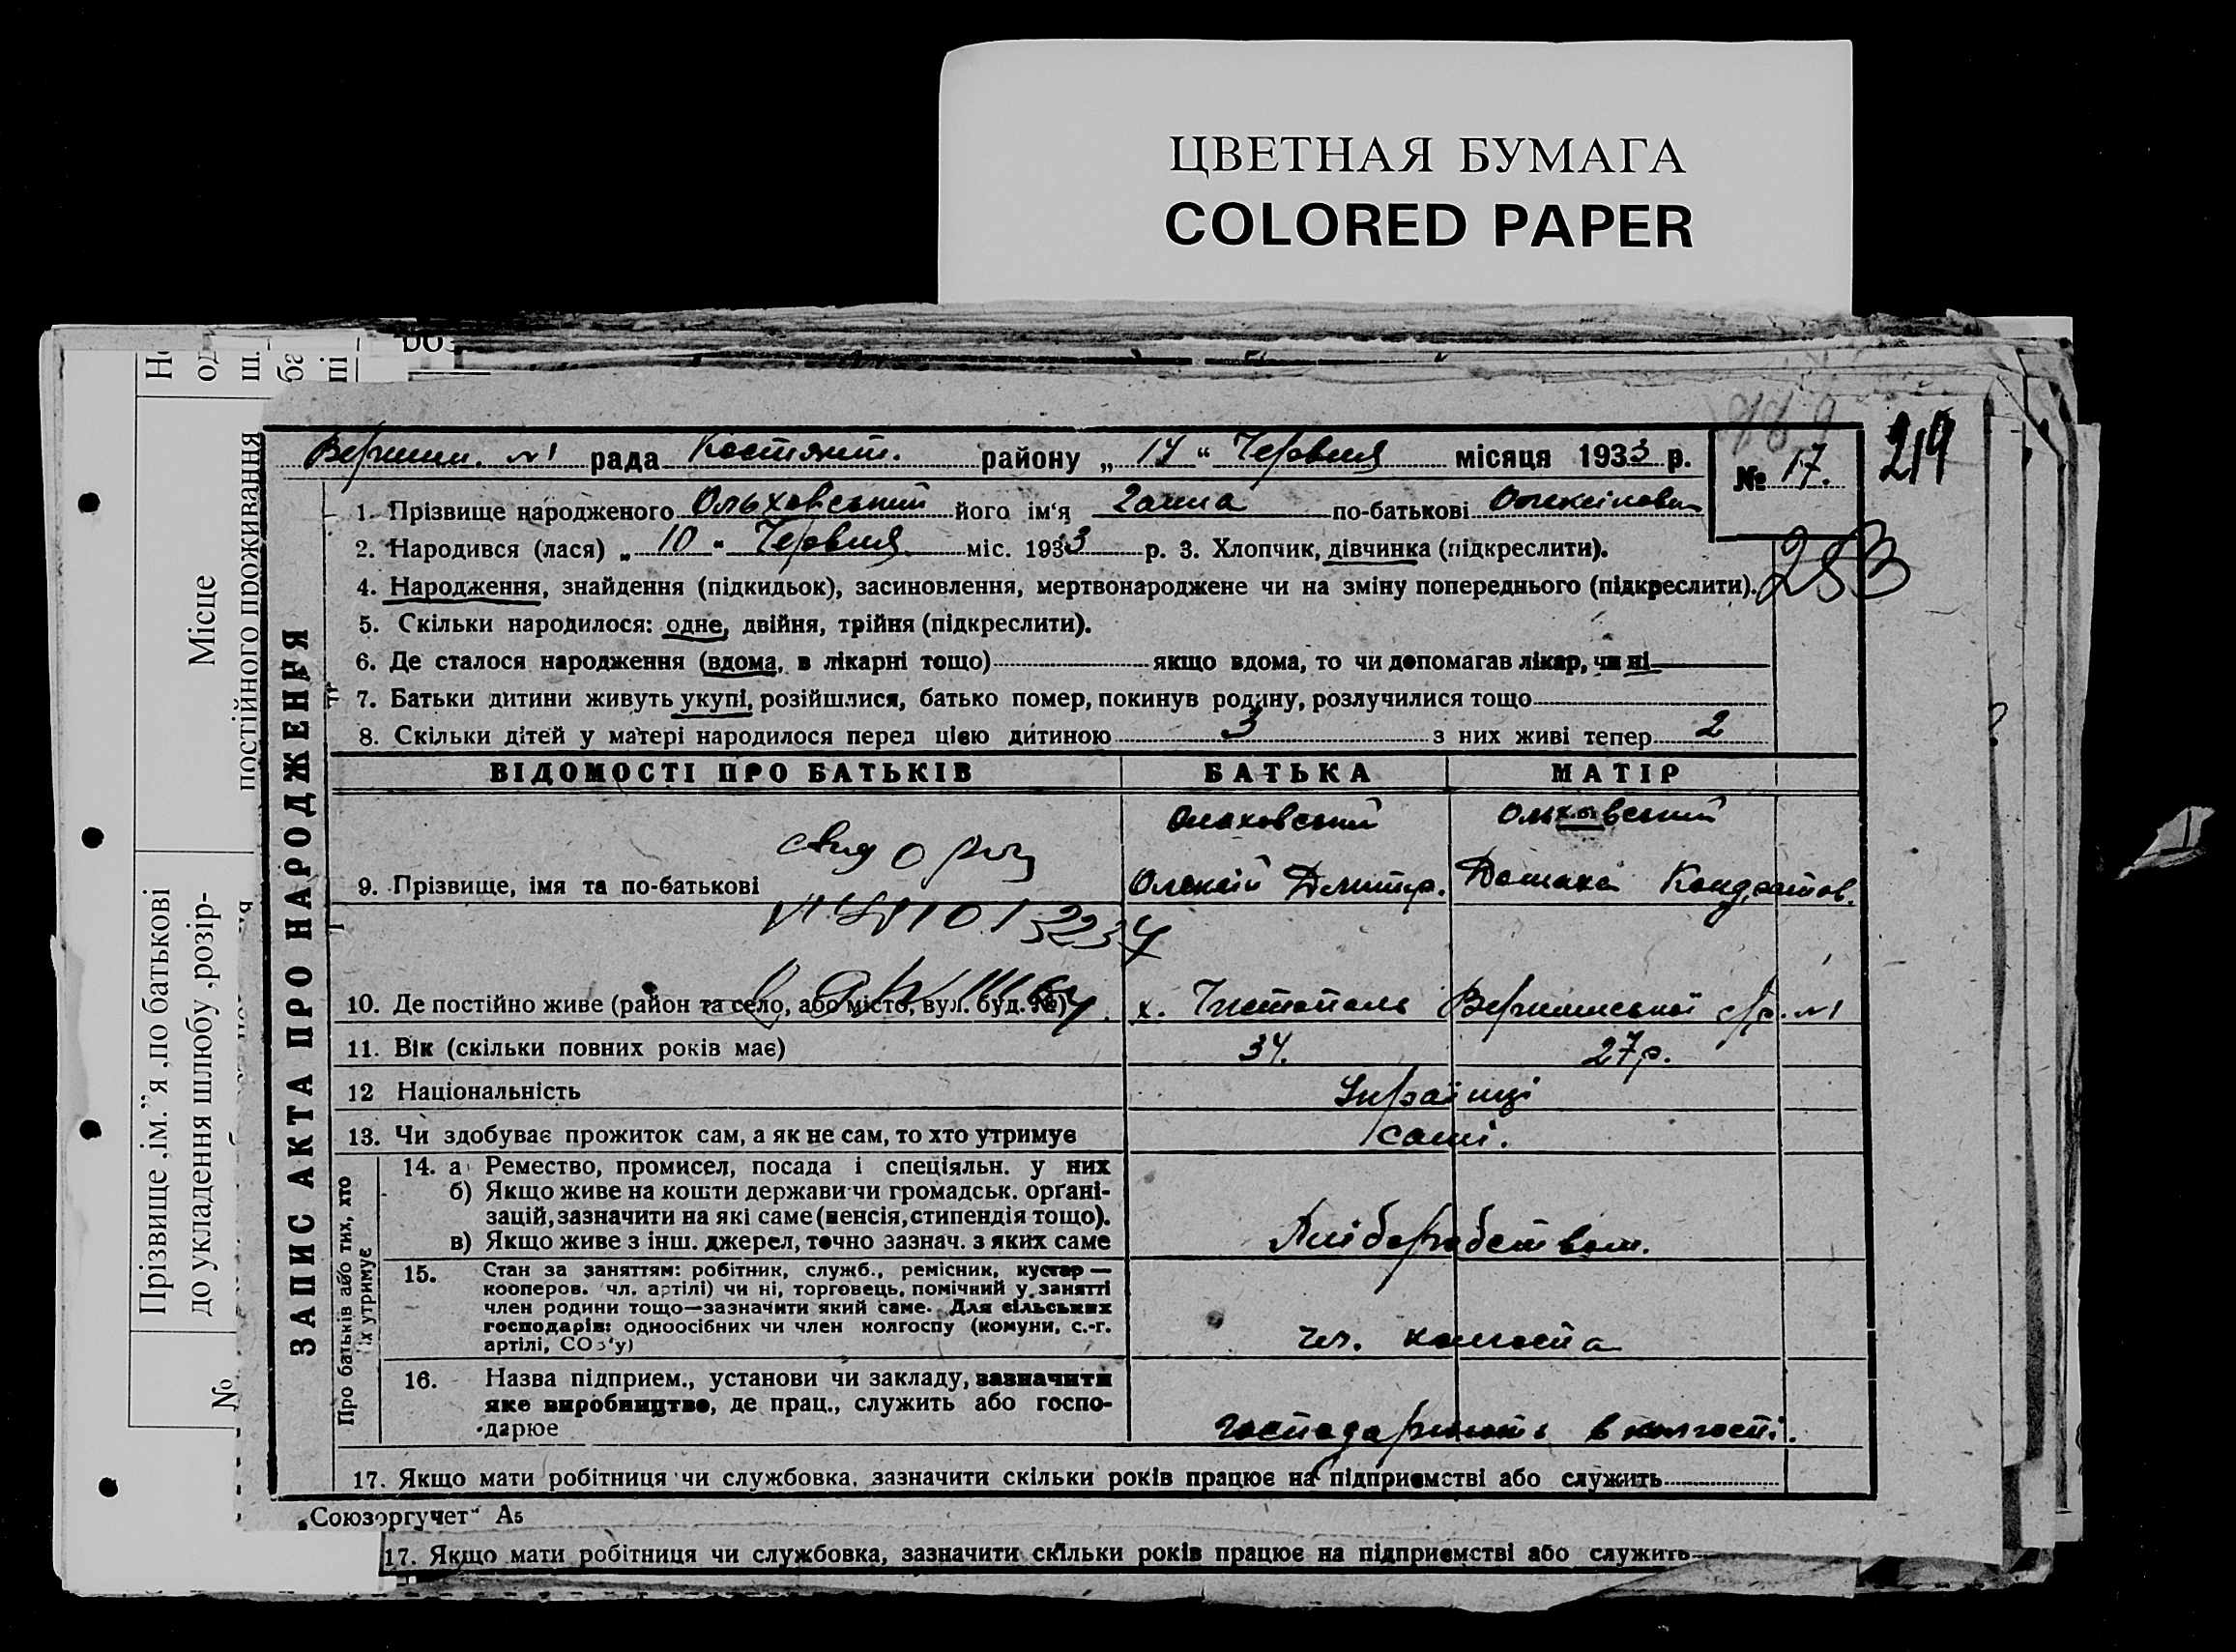 ЦВЕТНАЯ БУМАГА
COLORED PAPER
Місце
постійного проживання
Прізвище ,ім."я ,по батькові
до укладення шлюбу ,розір-
№
219
Вершин. №1 рада Костянт. району „ 17 “ Червня місяця 1933 р.
№ 17.
1. Прізвище народженого Ольховський його ім‘я Ганна по-батькові Олексійовн
2. Народився (лася) „ 10 “ Червня міс. 1933 р. 3. Хлопчик, дівчинка (підкреслити).
253
4. Народження, знайдення (підкидьок), засиновлення, мертвонароджене чи на зміну попереднього (підкреслити).
5. Скільки народилося: одне, двійня, трійня (підкреслити).
6. Де сталося народження (вдома, в лікарні тощо) якщо вдома, то чи допомагав лікар, чи ні
7. Батьки дитини живуть укупі, розійшлися, батько помер, покинув родину, розлучилися тощо
8. Скільки дітей у матері народилося перед цією дитиною 3 з них живі тепер 2
ЗАПИС АКТА ПРО НАРОДЖЕННЯ
ВІДОМОСТІ ПРО БАТЬКІВ БАТЬКА МАТІР
Ольховський Ольховський
9. Прізвище, імя та по-батькові Олексій Дмитр. Домаха Кондратов.
10. Де постійно живе (район та село, або місто, вул. буд. №) х. Чистополь Вершинської с/р. №1
11. Вік (скільки повних років має) 34. 27р.
12 Національність Українці
13. Чи здобуває прожиток сам, а як не сам, то хто утримує самі.
Про батьків або тих, хто
їх утримує
14. а Ремество, промисел, посада і спеціяльн. у них
б) Якщо живе на кошти держави чи громадськ. орґані-
зацій, зазначити на які саме (пенсія, стипендія тощо).
в) Якщо живе з інш. джерел, точно зазнач. з яких саме Хліборобством.
15. Стан за заняттям: робітник, служб., ремісник, кустар —
кооперов. чл. артілі) чи ні, торговець, помічний у занятті
член родини тощо—зазначити який саме. Для сільських
господарів: одноосібних чи член колгоспу (комуни, с.-г.
артілі, СОЗ‘у) чл. колгоспа
16. Назва підприєм., установи чи закладу, зазначити
яке виробництво, де прац., служить або госпо-
дарює господарюють в колгоспі.
17. Якщо мати робітниця чи службовка, зазначити скільки років працює на підприємстві або служить
„Союзоргучет“ А5
17. Якщо мати робітниця чи службовка, зазначити скільки років працює на підприємстві або служить